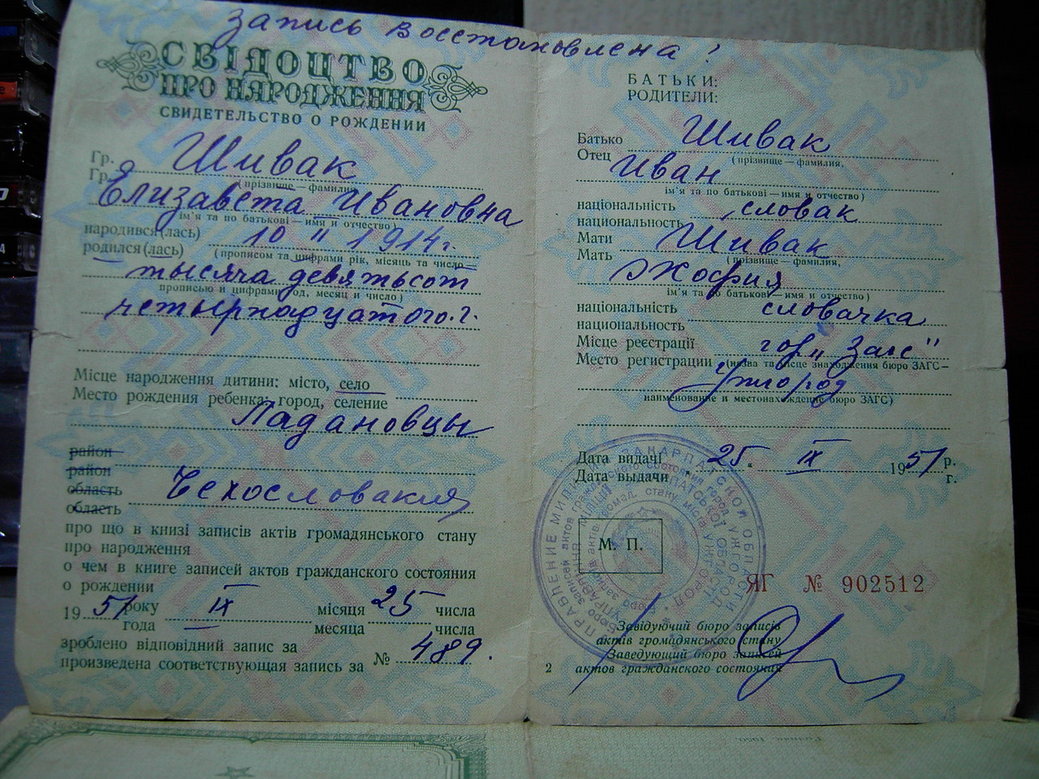 Запись восстановлена!
СВІДОЦТВО
ПРО НАРОДЖЕННЯ
СВИДЕТЕЛЬСТВО О РОЖДЕНИИ
Гр. Шивак
Гр.
(прізвище — фамилия,
Елизавета Ивановна
ім'я та по батькові — имя и отчество)
народився(лась)
родился(лась) 10 " 1914 г.
(прописом та цифрами рік, місяць та число —
тысяча девятьсот
прописью и цифрами год, месяц и число)
четырнадцатого.г.
Місце народження дитини: місто, село
Место рождения ребенка: город, селение
Ладановцы
район
район
область Чехословакия
область
про що в книзі записів актів громадянського стану
про народження
о чем в книге записей актов гражданского состояния
о рождении
1951 року IX місяця 25 числа
года месяца числа
зроблено відповідний запис за
произведена соответствующая запись за № 489.
БАТЬКИ:
РОДИТЕЛИ:
Батько Шивак
Отец
(прізвище — фамилия,
Иван
ім'я та по батькові — имя и отчество)
національність словак
национальность
Мати Шивак
Мать
(прізвище — фамилия,
Жофия
ім'я та по батькові — имя и отчество)
національність словачка
национальность
Місце реєстрації гор „Загс"
Место регистрации (назва та місце знаходження бюро ЗАГС —
Ужгород
наименование и местонахождение бюро ЗАГС)
Дата видачі 25. IX 1951 р.
Дата выдачи г.
М. П.
ЯГ № 902512
Завідуючий бюро записів
актів громадянського стану
Заведующий бюро записей
2 актов гражданского состояния